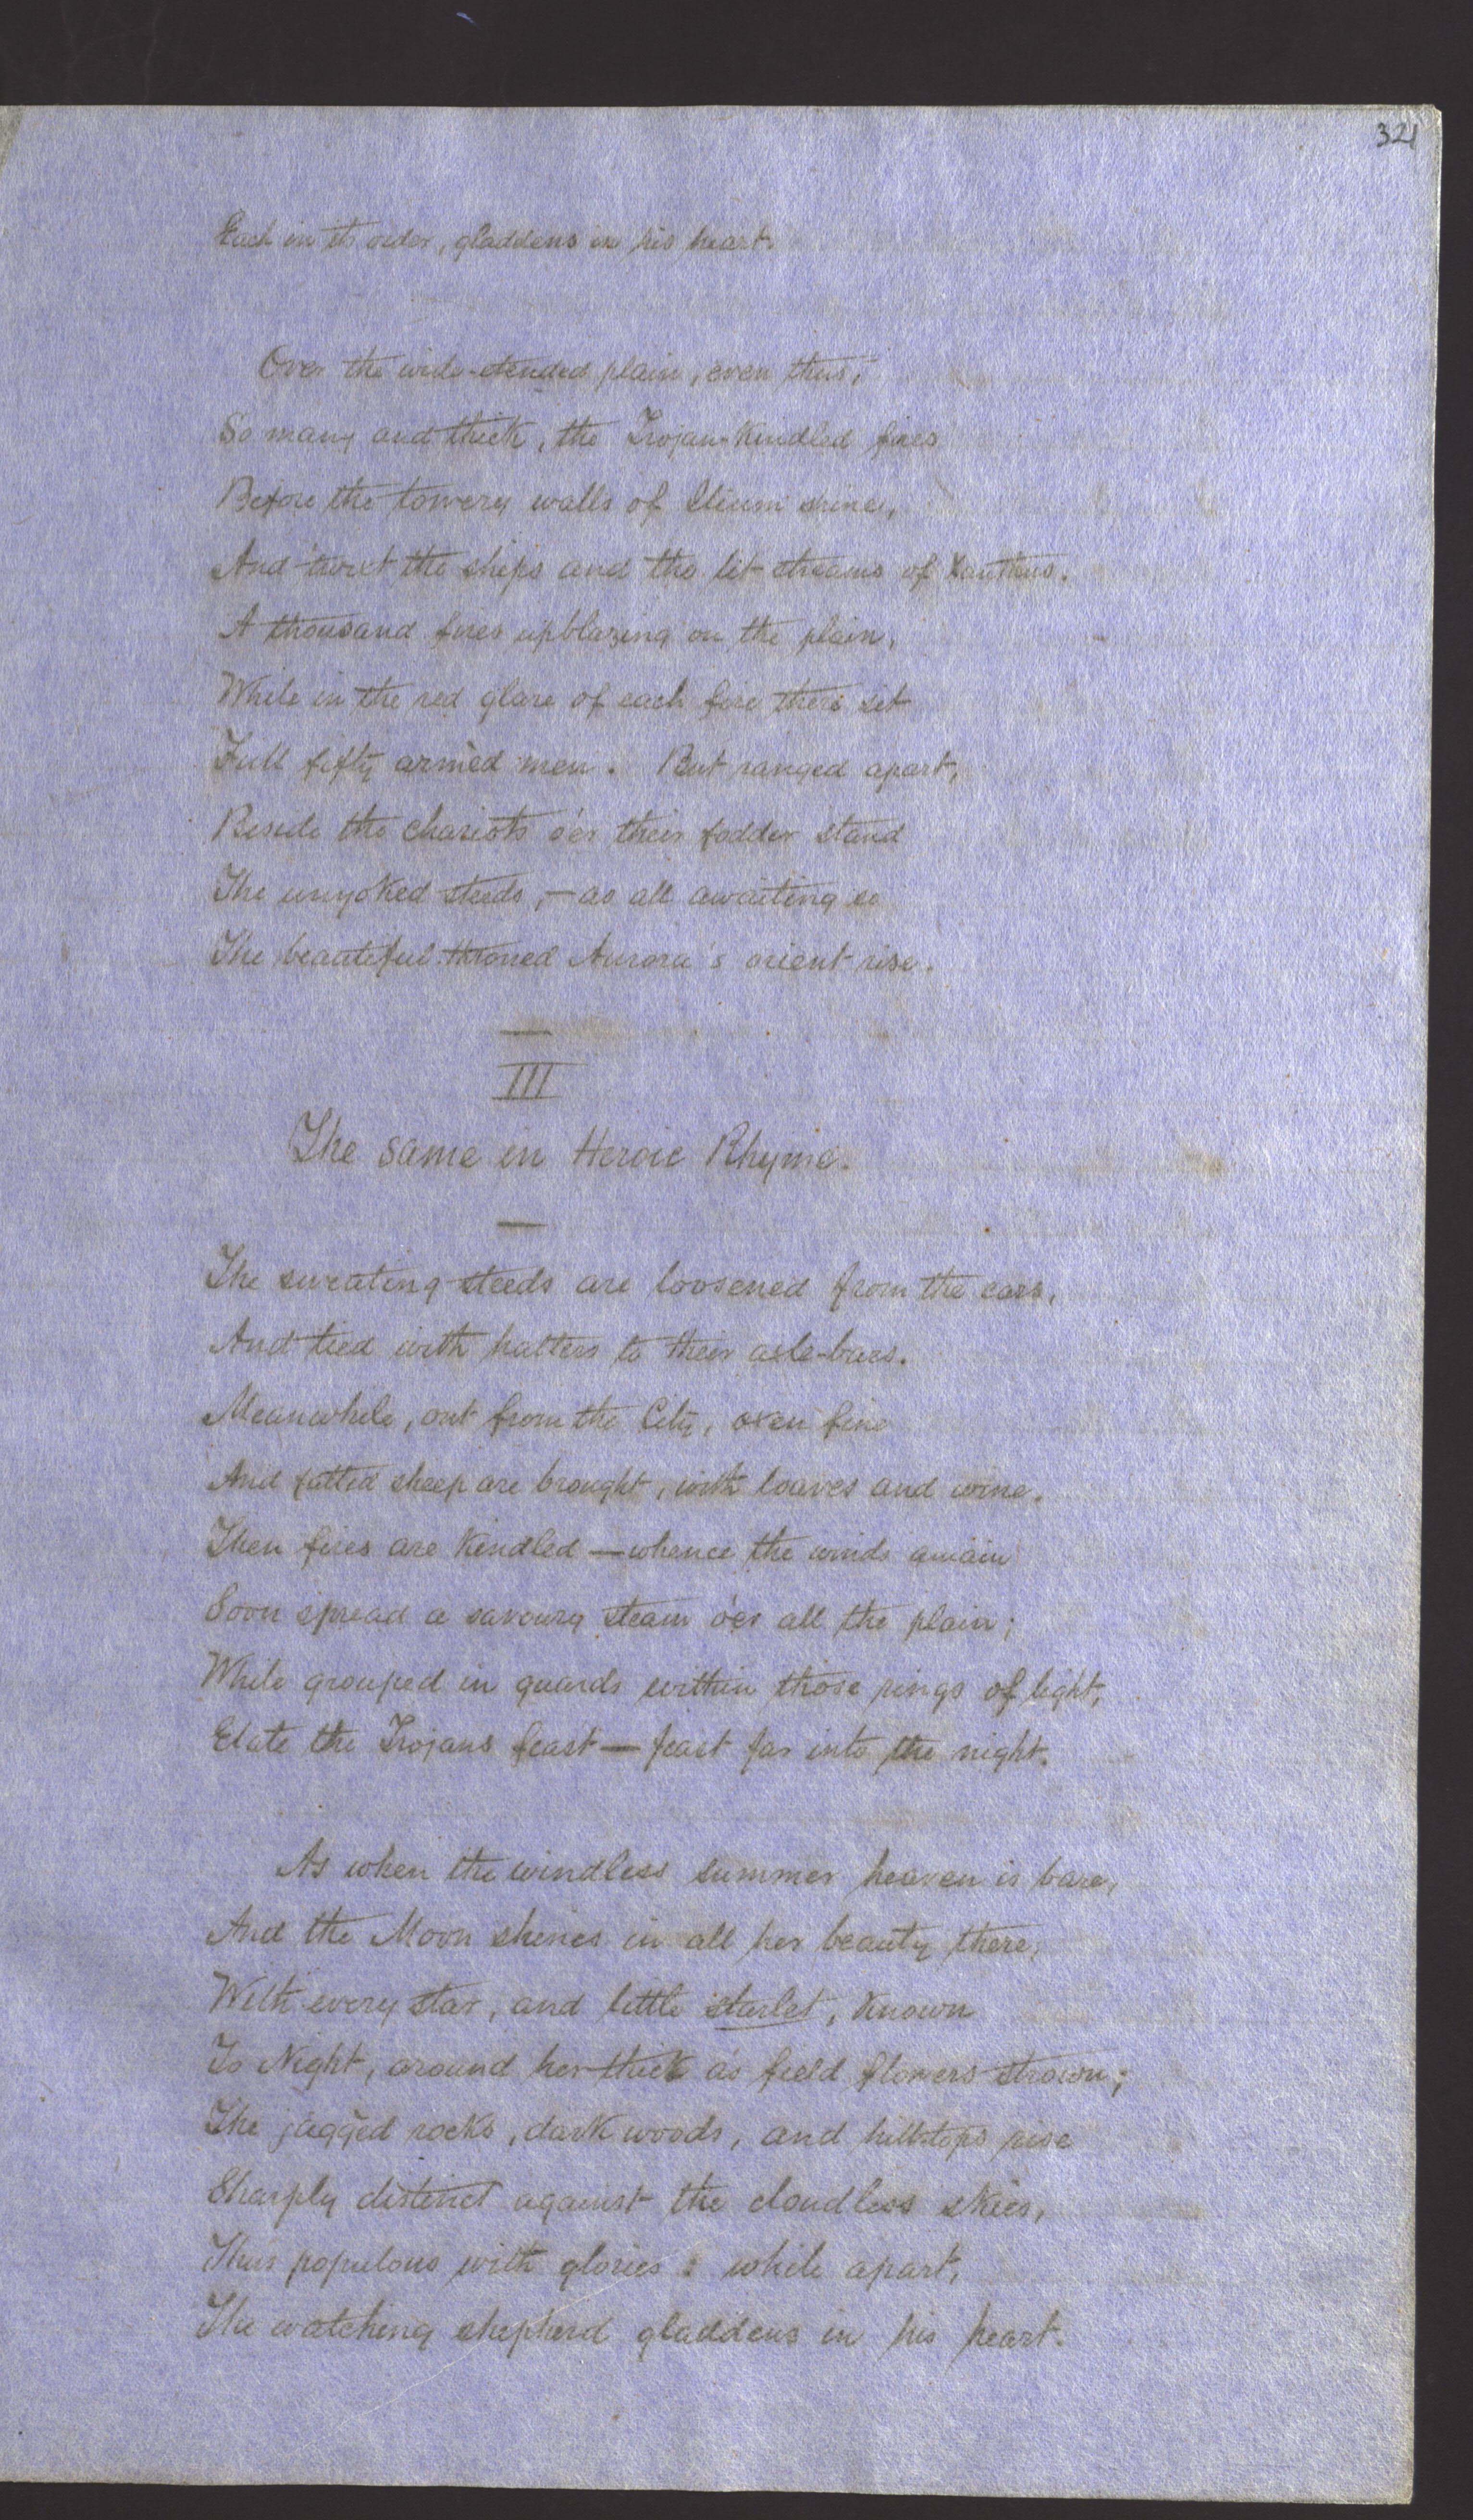 321
Each in its order, gladdens in his heart.
Over the wide-etended plain, even thus,
So many and thick, the Trojan-kindled fires
Before the towery walls of Ilium shine,
And twixt the ships and the lit streams of Xanthus.
A thousand fires upblazing on the plain,
While in the red glare of each fire there sit
Full fifty armèd men. But ranged apart,
Beside the chariots o'er their fodder stand
The unyoked steeds,—as all awaiting so
The beautiful-throned Aurora's orient rise.
III
The same in Heroic Rhyme.
The sweating steeds are loosened from the cars,
And tied with halters to their axle-bars.
Meanwhile, out from the City, oxen fine
And fatted sheep are brought, with loaves and wine.
Then fires are kindled—whence the winds amain
Soon spread a savoury steam o'er all the plain;
While grouped in guards within those rings of light,
Elate the Trojans feast—feast far into the night.
As when the windless summer heaven is bare,
And the Moon shines in all her beauty there,
With every star, and little starlet, known
To Night, around her thick as field flowers strown;
The jaggèd rocks, dark woods, and hill-tops rise
Sharply distinct against the cloudless skies,
Thus populous with glories: while apart,
The watching shepherd gladdens in his heart.